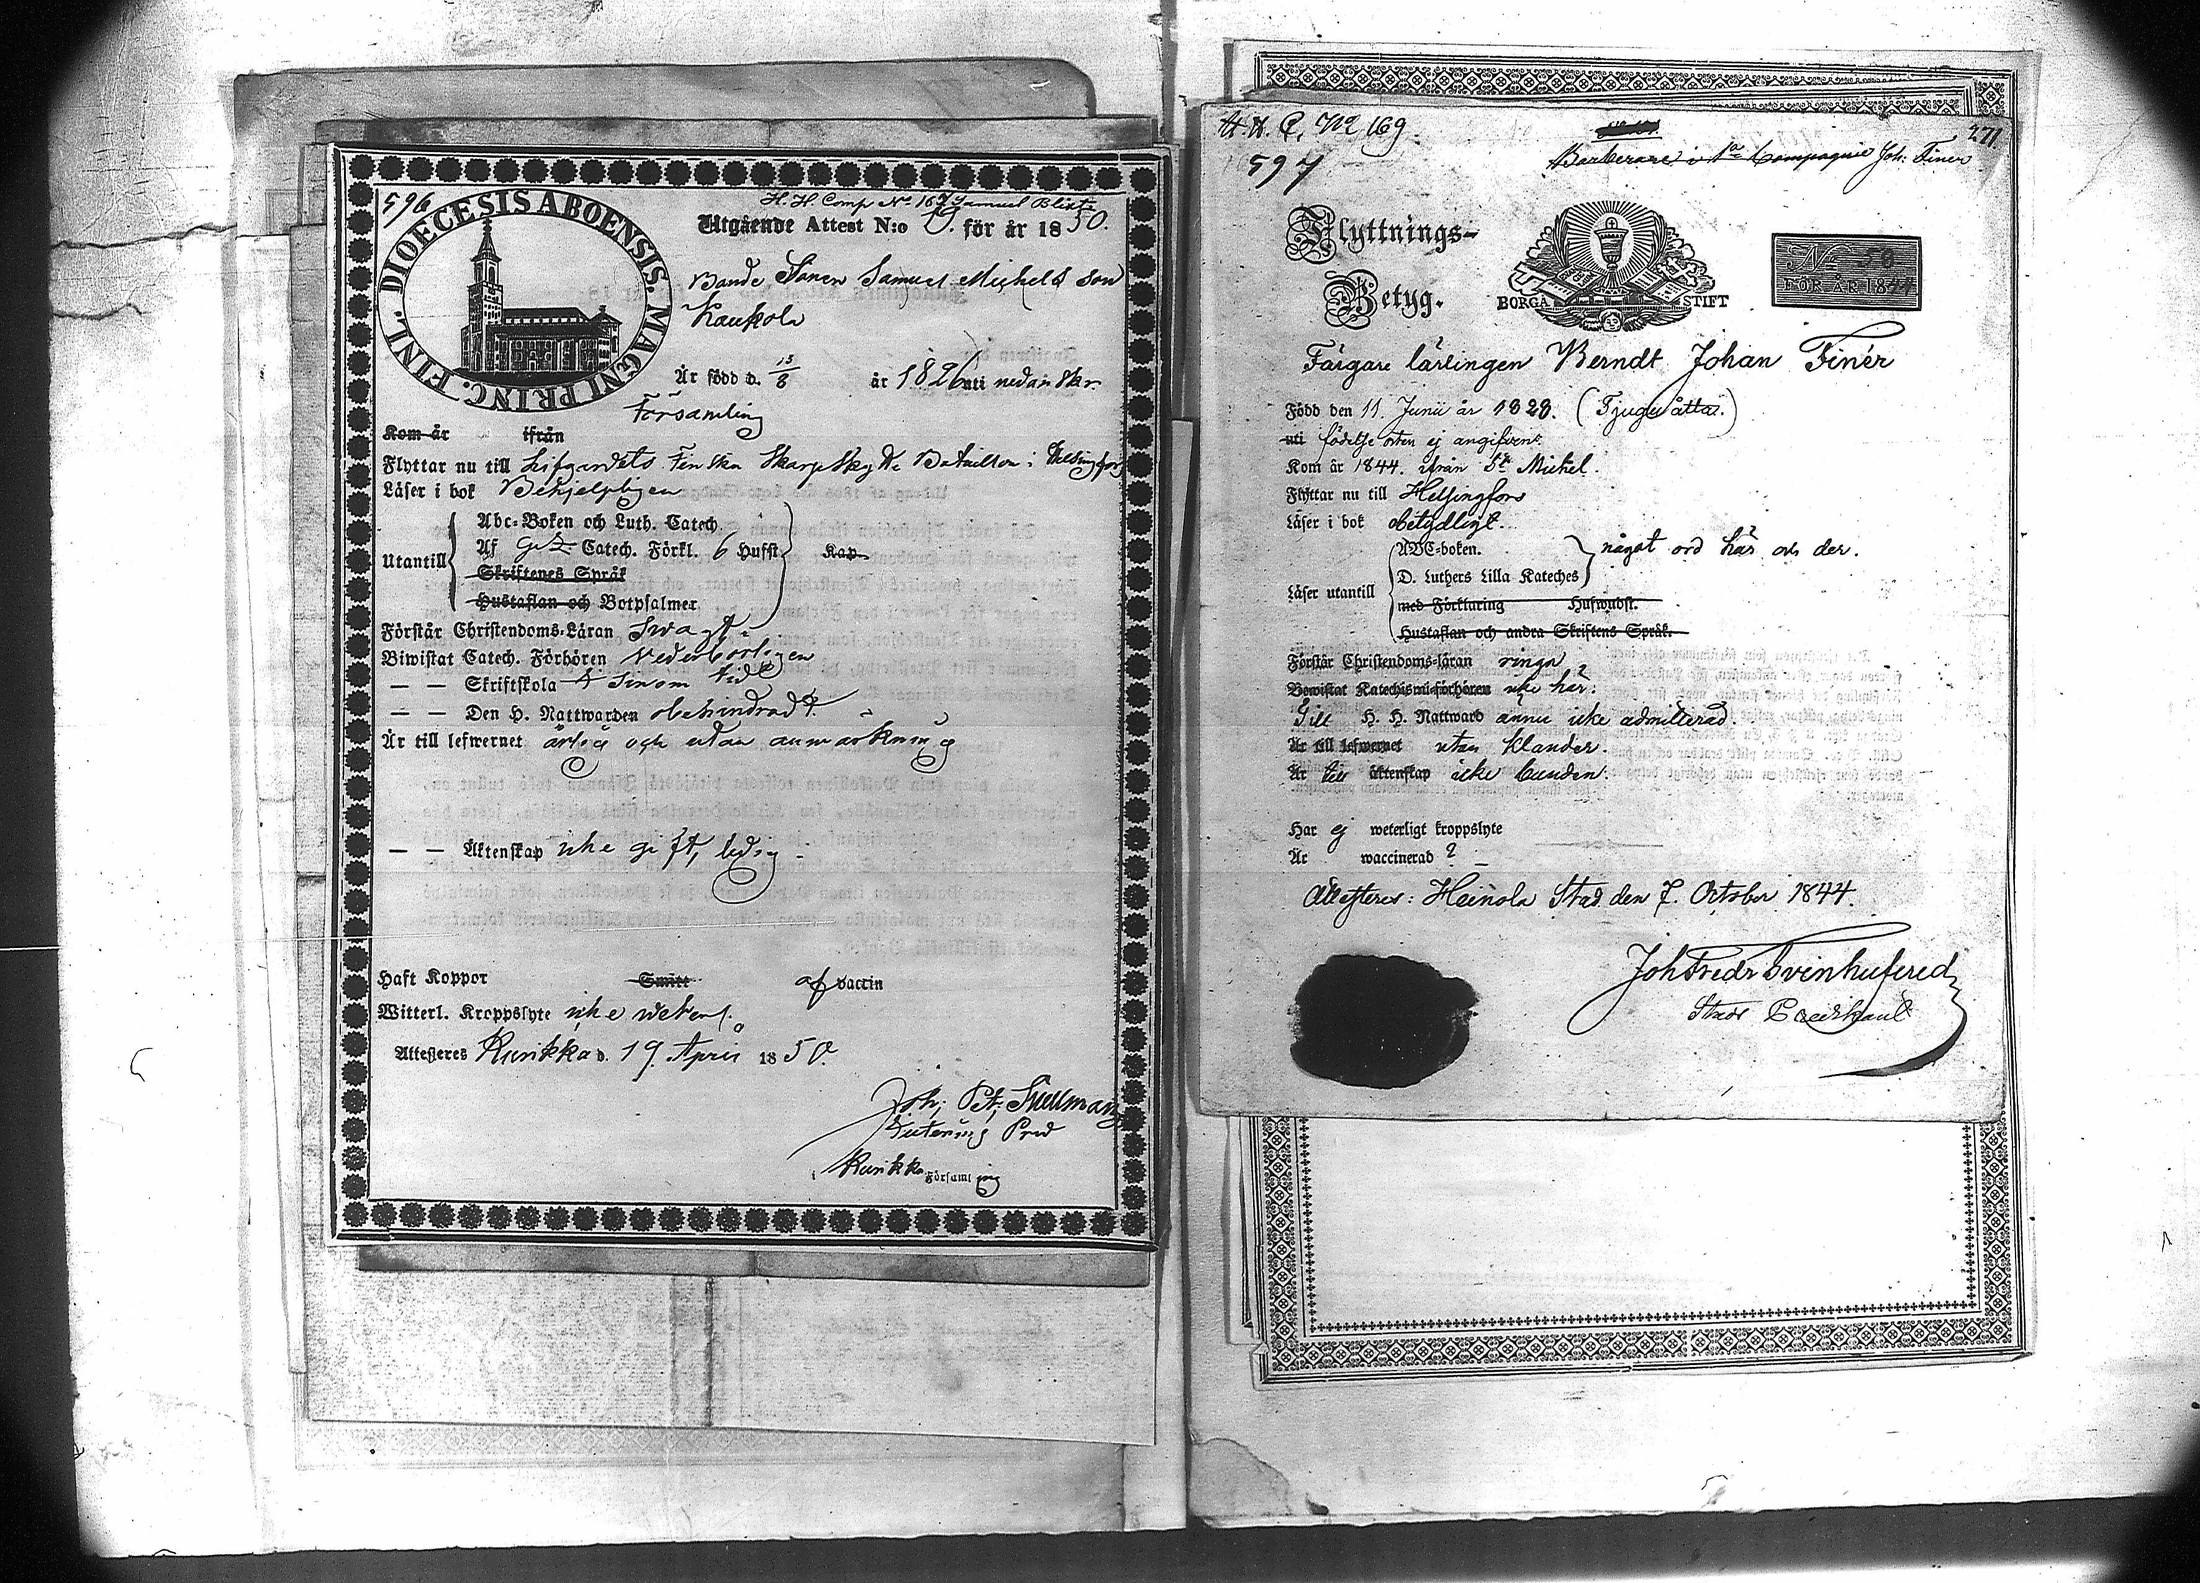 596
H. H. Comp No 167 Samuel Blixt
DIOECESIS ABOENSIS. MAGNI PRINC. FINL.
Utgående Attest N:o för år 1850.
Bonde Sonen Samuel Michels son
Laukola
Är född d. 13/8 år 1826 uti nedanskr.
Församling
Kom år ifrån
Flyttar nu till Lifgardets Finska Skarpskytte Bataillon i Helsingfors
Läser i bok Behjelpligen
Utantill
Abc-Boken och Luth. Catech.
Af Catech. Förkl. 6 Hufst. Kap
Skriftenes Språk
Hustaflan och Botpsalmer
Förstår Christendoms-Läran Swagt
Biwistat Catech. Förhören Vederbörligen
— — Skriftskola i sinom tid
— — Den H. Nattwarden obehindradt.
Är till lefwernet ärlig och utan anmärkning
— — Äktenskap icke gift, ledig
Haft Koppor Smitt af vaccin
Witterl. Kroppslyte icke veterl.
Attesteras Kurikka d. 19 April 1850.
Joh. Pet. Snellman
i Kurikka Församling
H. H. C. No 169.
271
597
Barberare i 1a Compagnie Joh: Finér
Flyttnings-
Betyg.
BORGÅ STIFT
No 50
FÖR ÅR 1844
Färgare lärlingen Berndt Johan Finér
Född den 11 Junii år 1828. (Tjuguåtta.)
uti födelse orten ej angifven.
Kom år 1844. ifrån St Michel.
Flyttar nu till Helsingfors
Läser i bok obetydligt.
Läser utantill
ABC-boken.
D. Luthers Lilla Kateches
något ord här och der.
med Förklaring Hufwudst.
Hustaflan och andra Skriftens Språk.
Förstår Christendoms-läran ringa
Bewistat Katechismi-förhören icke här.
Till H. H. Nattward ännu icke admitterad.
Är till lefwernet utan klander.
Är till äktenskap icke bunden.
Har ej weterligt kroppslyte
Är waccinerad ?
Attesteras: Heinola Stad den 7. October 1844.
Joh Fredr Svinhufvud